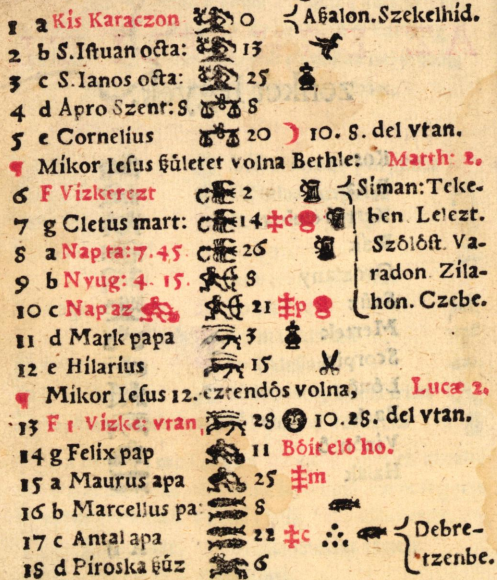 1 a Kis Karaczon 0 Aßalon. Szekelhid.
2 b S. Iſtuan octa: 13
3 c S. Ianos octa: 25
4 d Apro Szent: 8 8
5 e Cornelius 20 10. 8. del vtan.
¶ Mikor Ieſus ßületet volna Bethle: Matth: 2.
6 F Vizkerezt 2 Siman: Teke-
7 g Cletus mart: 14 ‡c ben. Lelezt.
8 a Nap ta: 7. 45 26 Szôlôſt. Va-
9 b Nyug: 4. 15. 8 radon. Zila-
10 c Nap az 21 ‡p hon. Czebe.
11 d Mark papa 3
12 e Hilarius 15
¶ Mikor Ieſus 12. eztendôs volna, Lucæ 2.
13 F 1 Vizke: vtan 28 10. 28. del vtan.
14 g Felix pap 11 Bôit elô ho.
15 a Maurus apa 25 ‡m
16 b Marcellus pa: 8
17 c Antal apa 22 ‡c Debre-
18 d Piroska ßúz 6 tzenbe.